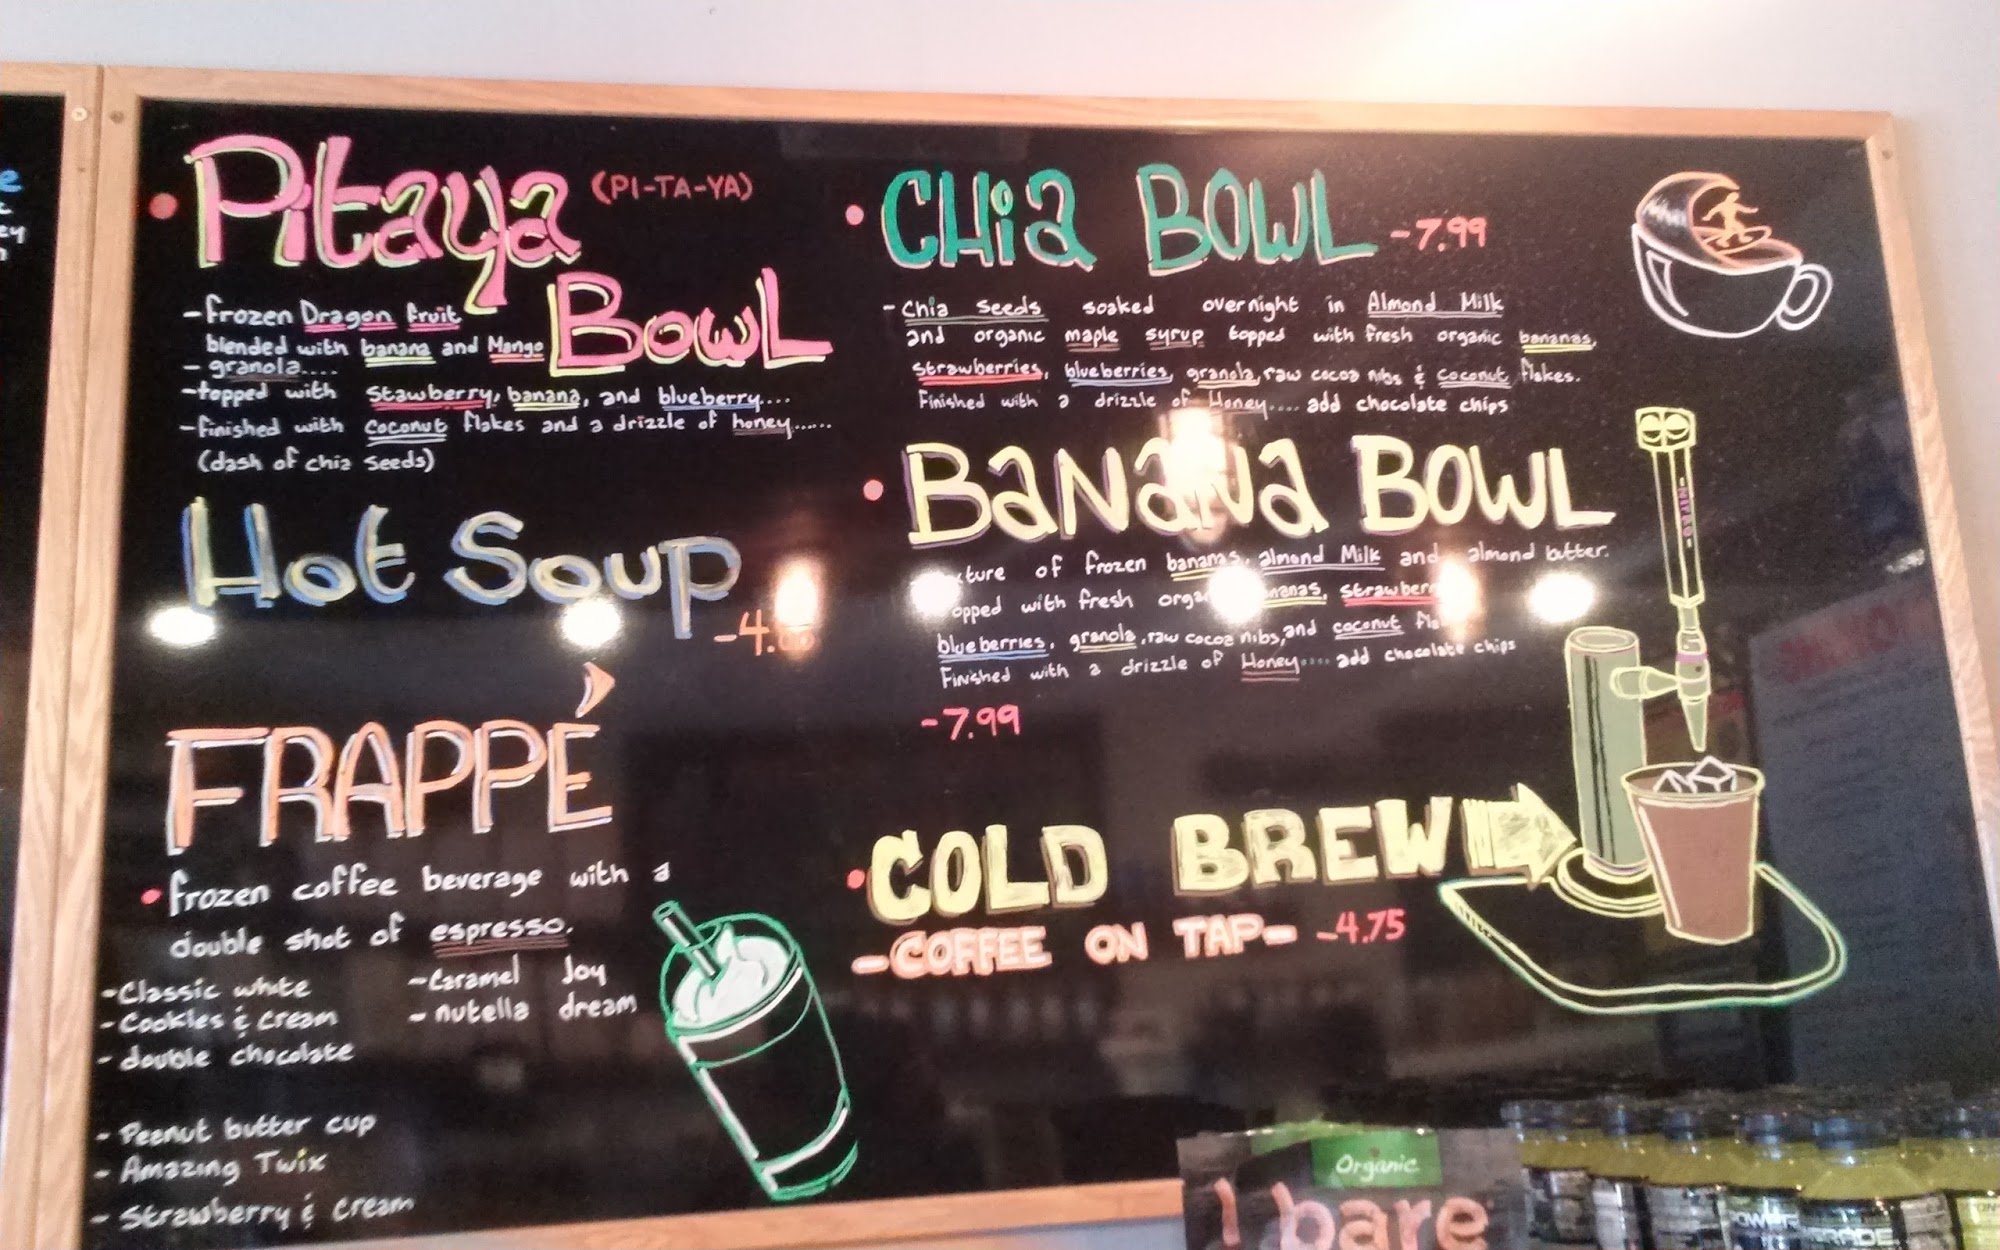 Pitaya (PI-TA-YA)
BowL
-frozen Dragon fruit
blended with banana and Mango
- granola....
-topped with Stawberry, banana, and blueberry....
-finished with coconut flakes and a drizzle of honey......
(dash of chia seeds)
Hot Soup
-4.
FRAPPÉ
frozen coffee beverage with a
double shot of espresso.
-Classic white
-Cookies & cream
- double chocolate
- Caramel Joy
- nutella dream
- Peanut butter cup
- Amazing Twix
- Strawberry & cream
CHia BOWL -7.99
- Chia seeds soaked overnight in Almond Milk
and organic maple syrup topped with fresh organic bananas,
strawberries, blueberries, granola, raw cocoa nibs & coconut flakes.
Finished with a drizzle of Honey.... add chocolate chips
BaNaNa BOWL
of frozen bananas, almond Milk and almond butter.
with fresh
blueberries, granola, raw cocoa nibs, and coconut
Finished with a drizzle of Honey.... add chocolate chips
-7.99
COLD BREW
-COFFEE ON TAP- -4.75
-NITRO-
Organic
bare